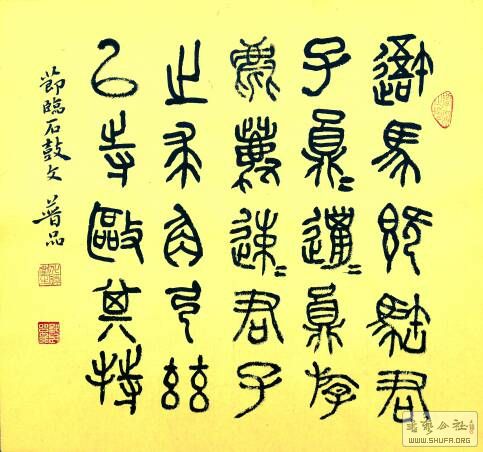 吾馬既君
子員〓邋〓員斿
麀鹿速〓君子
之求角弓茲
以寺毆其特
節臨石鼓文 普品
书艺公社
WWW.SHUFA.ORG